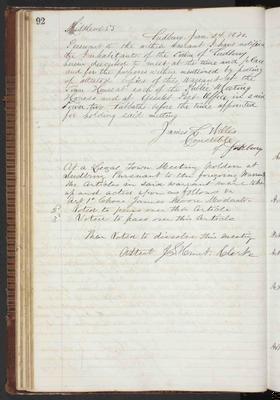 92
Middlesex SS
Sudbury Jan. 24. 1870.
Pursuant to the within Warrant I have notified
the Inhabitants of the Town of Sudbury
herein described to meet at the time and place
and for the purposes within mentioned by posting
up attested copies of this Warrant at the
Town House at each of the Public Meeting
Houses and at Post Office in said
Town two Sabbaths before the time appointed
for holding said meeting
James L. Willis
Constable
of Sudbury
At a Legal Town Meeting holden at
Sudbury Pursuant to the foregoing Warrant
the Articles in said Warrant were taken
up and acted upon as follows viz
Art 1st Chose James Moore Moderator
2d Voted to pass over this Article
3d Voted to pass over this Article
Then Voted to dissolve this meeting
Attest J. S. Hunt. Clerk